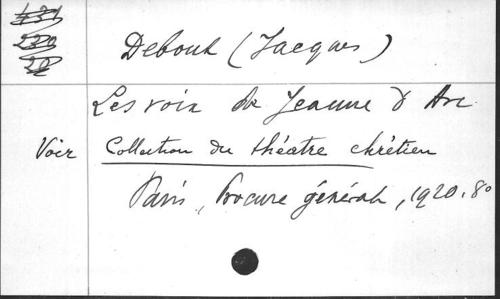 Debout (Jacques)
Les voix de Jeanne d'Arc
Voir Collection du théâtre chrétien
Paris, Procure générale, 1920. 8°